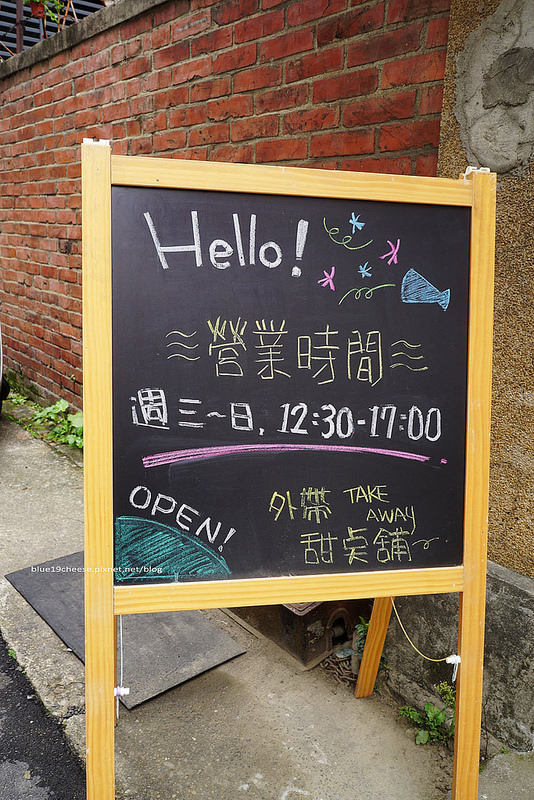 Hello!
營業時間
週三~日, 12:30-17:00
OPEN!
外帶 TAKE AWAY
甜桌舖
blue19cheese.pixnet.net/blog